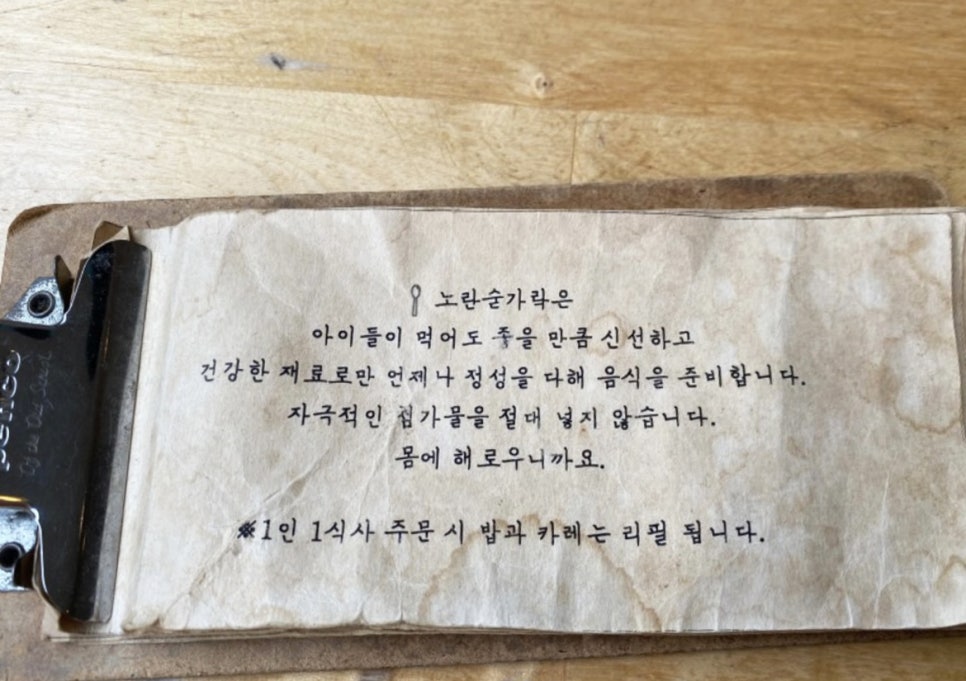 노란숟가락은
아이들이 먹어도 좋을 만큼 신선하고
건강한 재료로만 언제나 정성을 다해 음식을 준비합니다.
자극적인 첨가물을 절대 넣지 않습니다.
몸에 해로우니까요.
※1인 1식사 주문 시 밥과 카레는 리필 됩니다.
penco